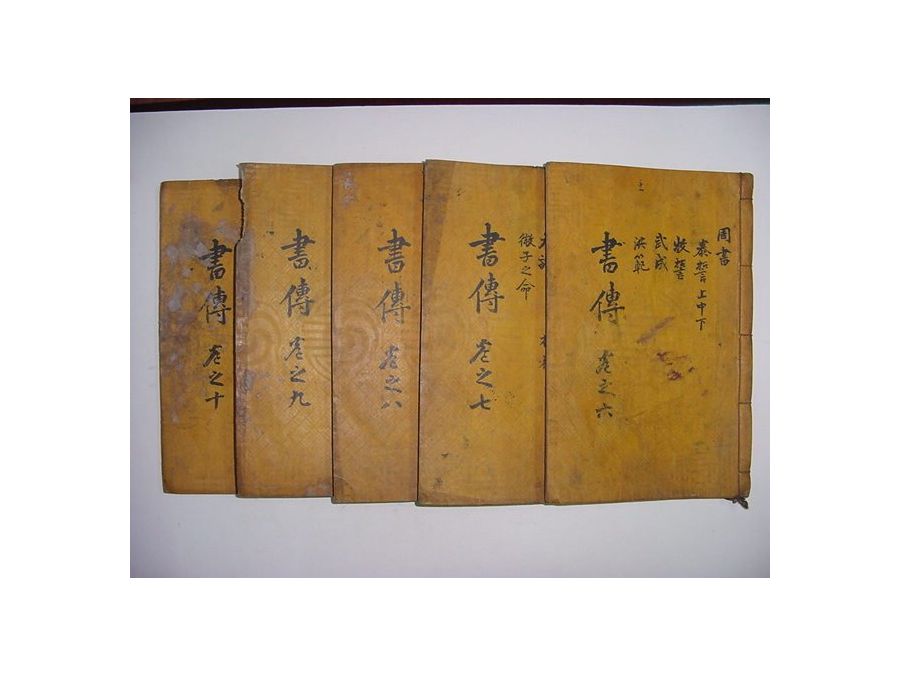 周書
泰誓 上中下
牧誓
武成
洪範
書傳 卷之六
微子之命
書傳 卷之七
書傳 卷之八
書傳 卷之九
書傳 卷之十